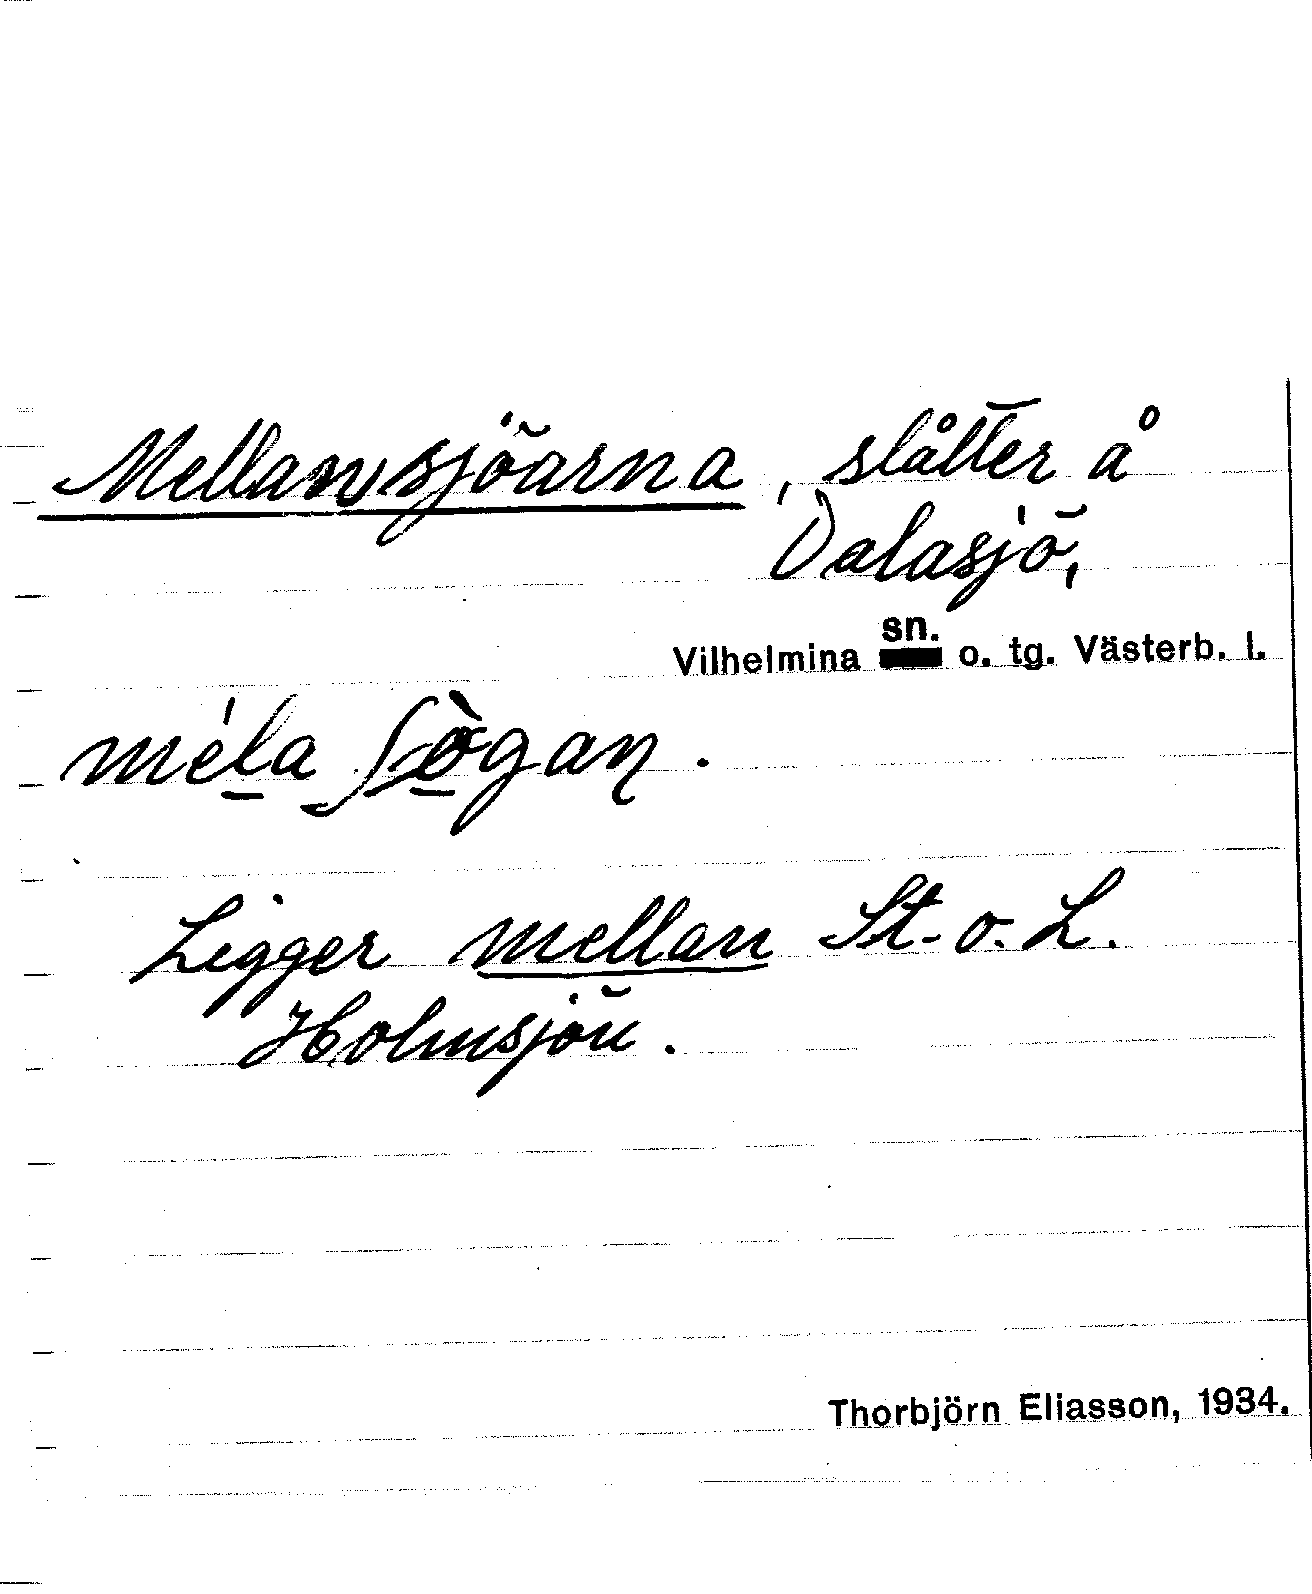 Mellansjöarna, slåtter å
Dalasjö,
Vilhelmina sn. o. tg. Västerb. l.
Ligger mellan St. o. L.
Holmsjön.
Thorbjörn Eliasson, 1934.